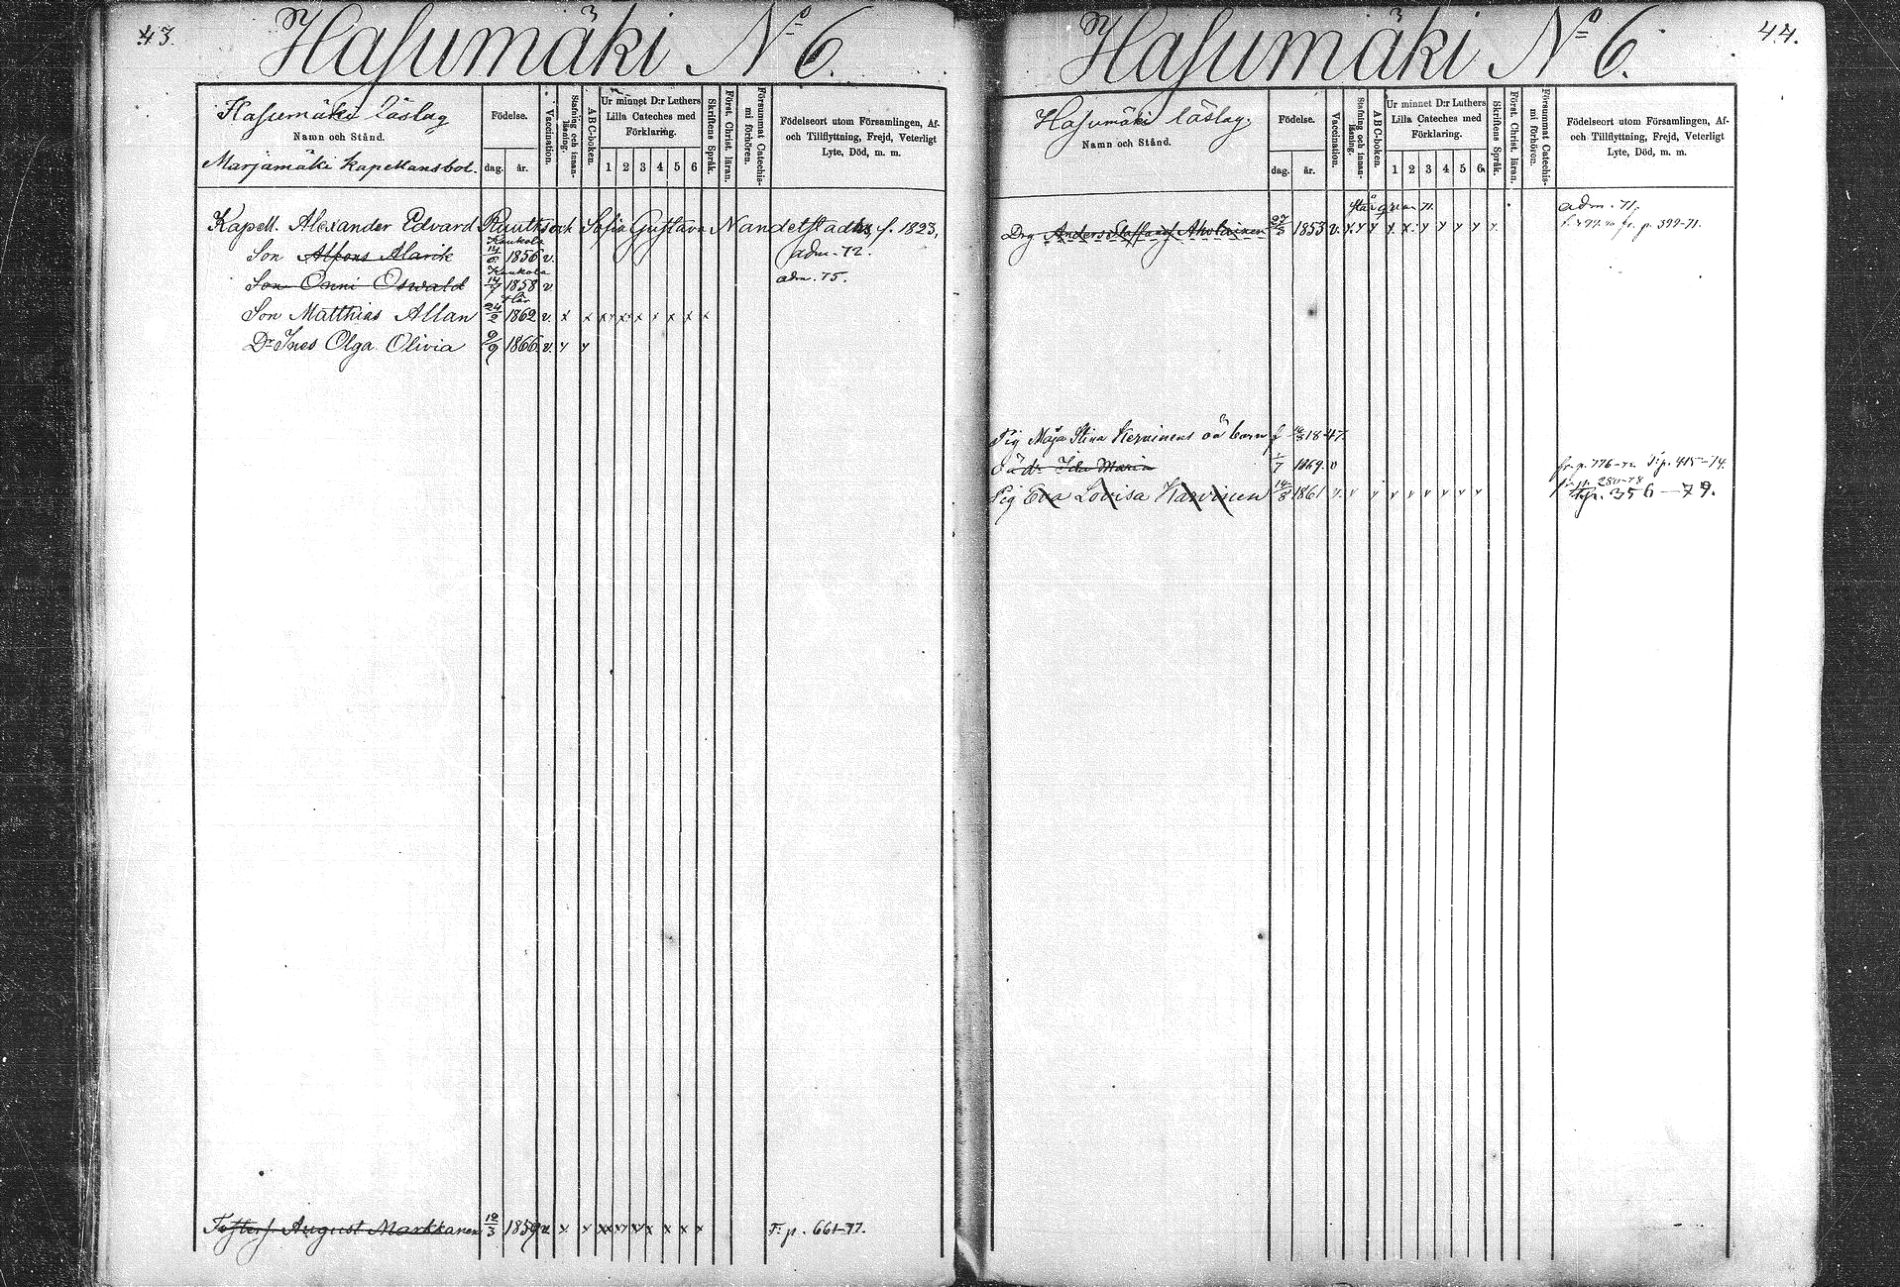 43.
Hasumäki No 6.
Hasumäki läslag
Namn och Stånd.
Marjamäki Kapellansbol.
Födelse.
dag. år.
Vaccination.
Stafning och innanläsning.
ABC-boken.
Ur minnet D:r Luthers Lilla Cateches med Förklaring.
1 2 3 4 5 6
Skriftens Språk.
Förest. Christ. läran.
Försummat Catechismi förhören.
Födelseort utom Församlingen, Af- och Tillflyttning, Frejd, Veterligt Lyte, Död, m. m.
Kapell. Alexander Edvard och Sofia Gustava f. 1823,
Son Alfons Alarik Kaukola 1856 v. adm. 72.
Son Onni Oswald Kaukola 14/7 1858 v adm. 75.
Son Matthias Allan här 24/2 1862 v. x x x x x x x x x
Dr Ines Olga Olivia 9/9 1866 v. x x
Fosters. August Markkanen 12/3 1859 v. x x x x x x x x x T. p. 661-77.
44.
Hasumäki No 6.
Hasumäki läslag.
Namn och Stånd.
Födelse.
dag. år.
Vaccination.
Stafning och innanläsning.
ABC-boken.
Ur minnet D:r Luthers Lilla Cateches med Förklaring.
1 2 3 4 5 6.
Skriftens Språk.
Förest. Christ. läran.
Försummat Catechismi förhören.
Födelseort utom Församlingen, Af- och Tillflyttning, Frejd, Veterligt Lyte, Död, m. m.
adm. 71.
Drg Anders Staffansf. Aholainen 1853 v. x x x x x x x x x x fr. p. 399-71.
Pig Maja Stina Kervinens oä barn f 18 47.
oä dr Ida Maria 1/7 1869. v fr. p. 776-72 T. p. 415-74.
Pig Eva Lovisa Karvinen 14/8 1861 v. v v v v v v v v
T. p. 356-79.